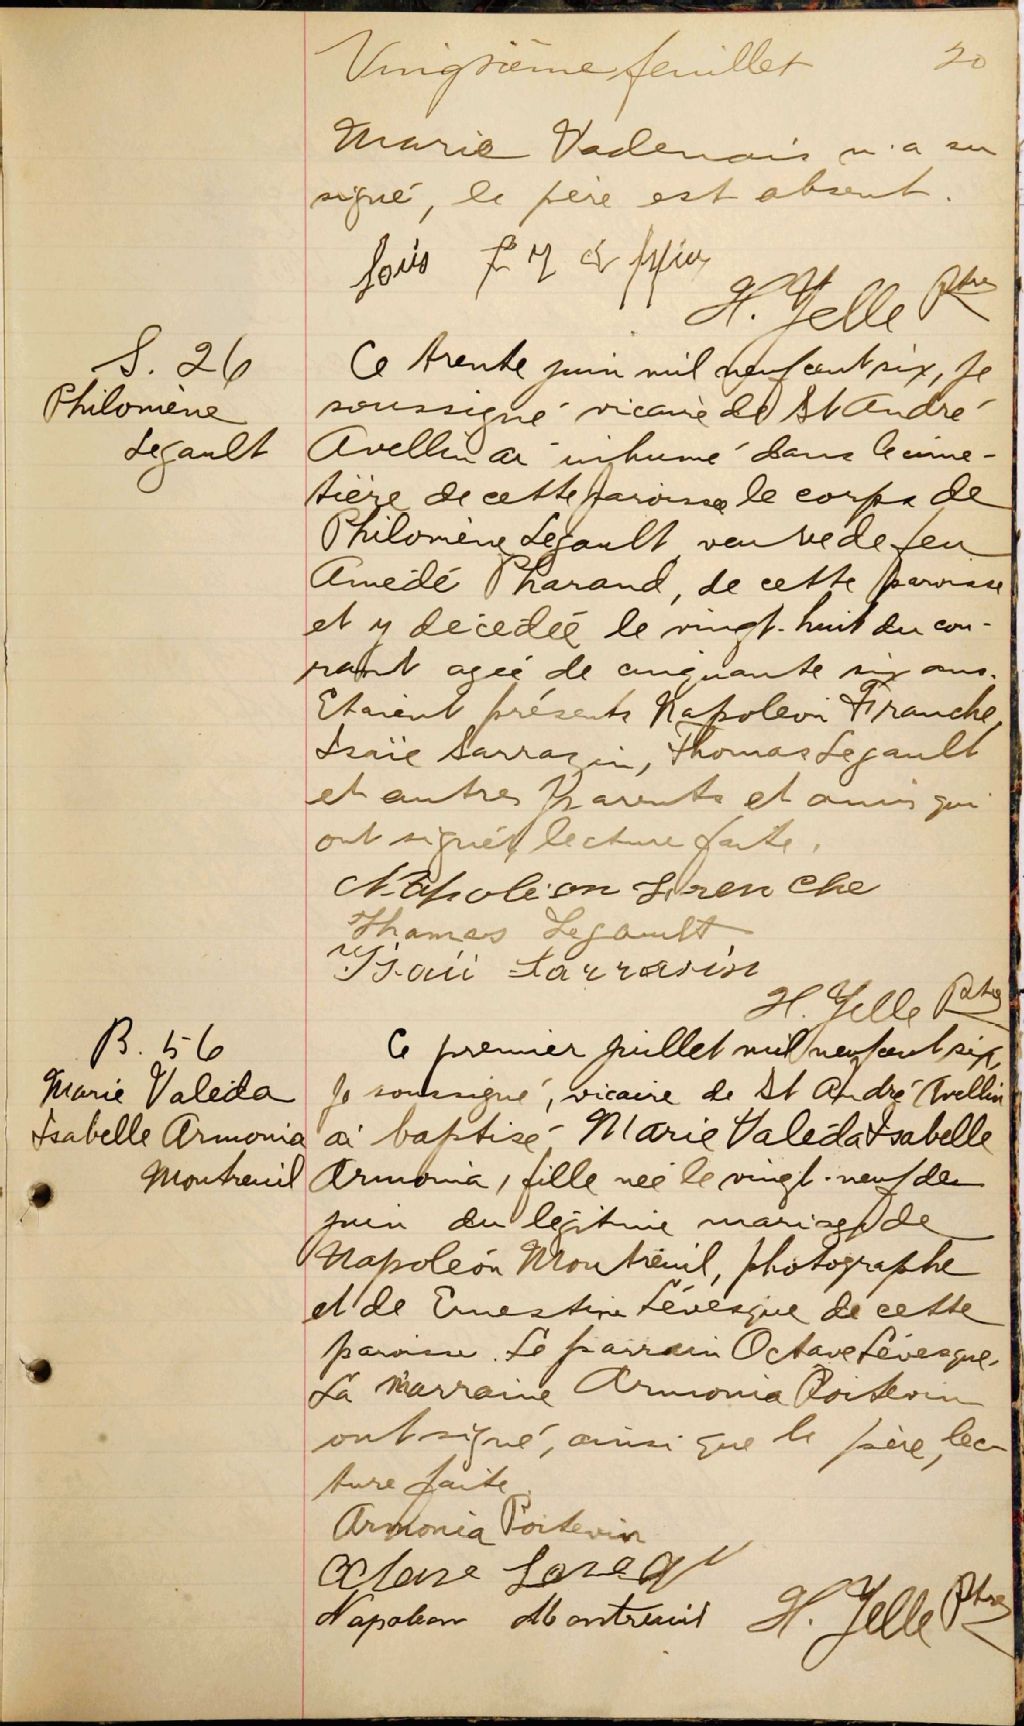 Vingtième feuillet 20
Marie Vadenais n'a su
signé, le père est absent.
Louis
H. Yelle Ptre
S. 26
Philomène
Legault
Ce trente juin mil neuf cent six, Je
soussigné vicaire de St André
Avellin ai inhumé dans le cime-
tière de cette paroisse le corps de
Philomène Legault, veuve de feu
Amédé Pharand, de cette paroisse
et y décedée le vingt-huit du cou-
rant agée de cinquante six ans.
Etaient présents Napoleon Franche,
Isaïe Sarrazin, Thomas Legault
et autres parents et amis qui
ont signés, lecture faite.
Napoleion Frenche
Thomas Legault
Isaii Sarrasin
H. Yelle Ptre
B. 56
Marie Valéda
Isabelle Armonia
Montreuil
Ce premier juillet mil neuf cent six,
Je soussigné, vicaire de St André Avellin
ai baptisé Marie Valéda Isabelle
Armonia, fille née le vingt-neuf de
juin du légitime mariage de
Napoléon Montreuil, photographe
et de Ernestine Lévesque de cette
paroisse. Le parrain Octave Lévesque,
La marraine Armonia Poitevin
ont signé, ainsi que le père, lec-
ture faite.
Armonia Poitevin
Octave
Napoleon Montreuil H. Yelle Ptre